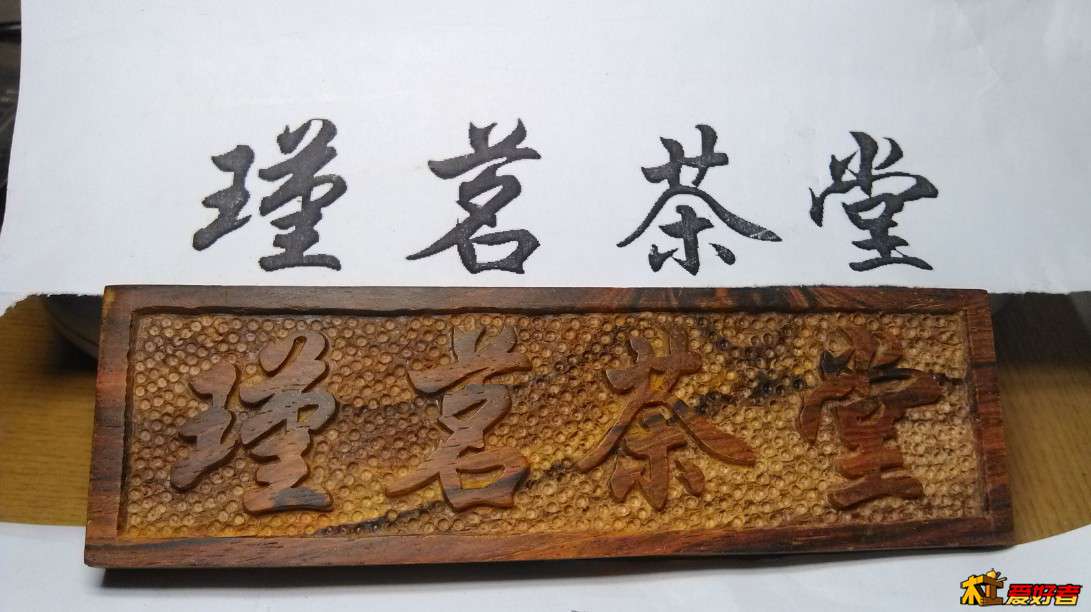 瑾茗茶堂
瑾茗茶堂
木工爱好者